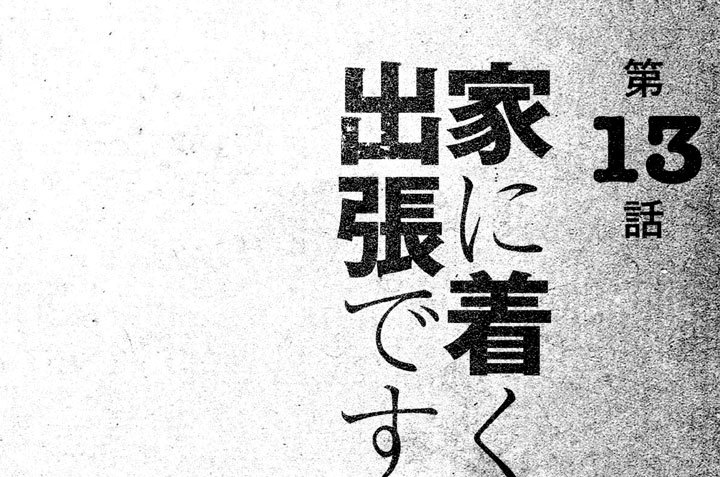 第13話
家に着く
出張です